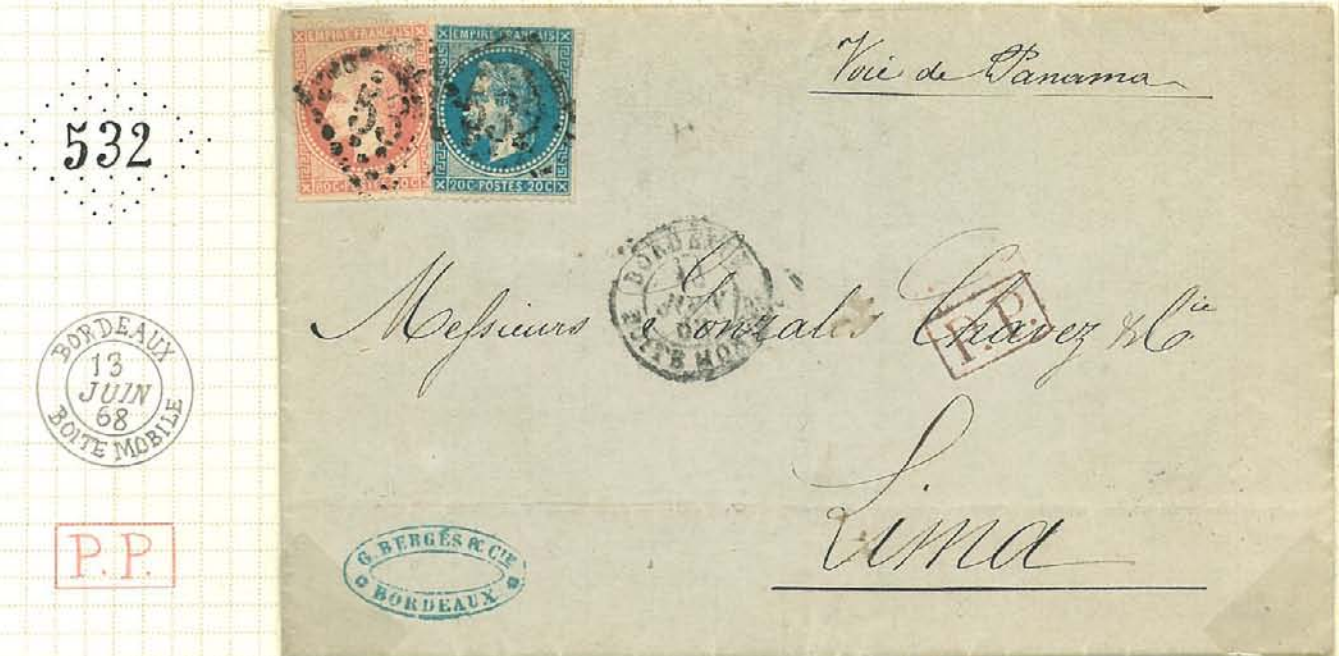 532
BORDEAUX
13
JUIN
68
BOITE MOBILE
P.P.
EMPIRE FRANÇAIS
80C·POSTES·80C
EMPIRE FRANÇAIS
20C·POSTES·20C
5
53
Voie de Panama
BORDEAUX
13
JUIN
68
BOITE MOBILE
Messieurs Gonzales Chavez & Cie
P.P.
Lima
G. BERGÈS & CIE
BORDEAUX